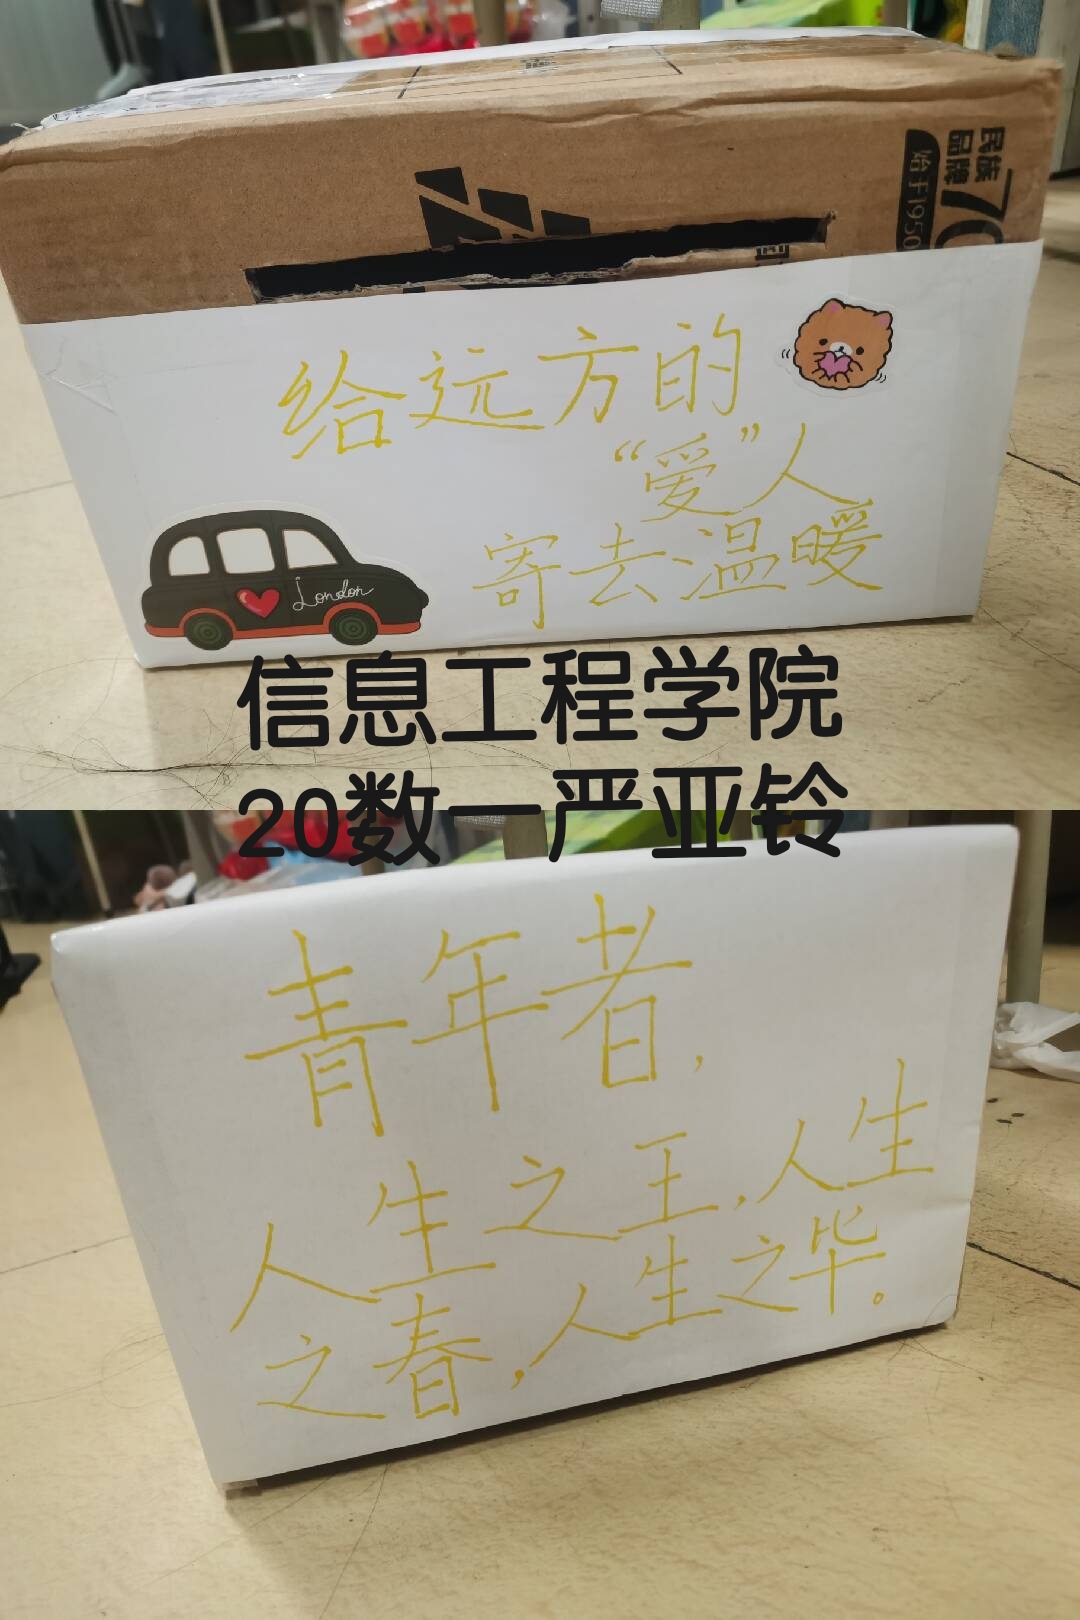 民族
品牌
70
始于1950
给远方的
“爱”人
寄去温暖
London
信息工程学院
20数一严亚铃
青年者，
人生之王，人生
之春，人生之毕。